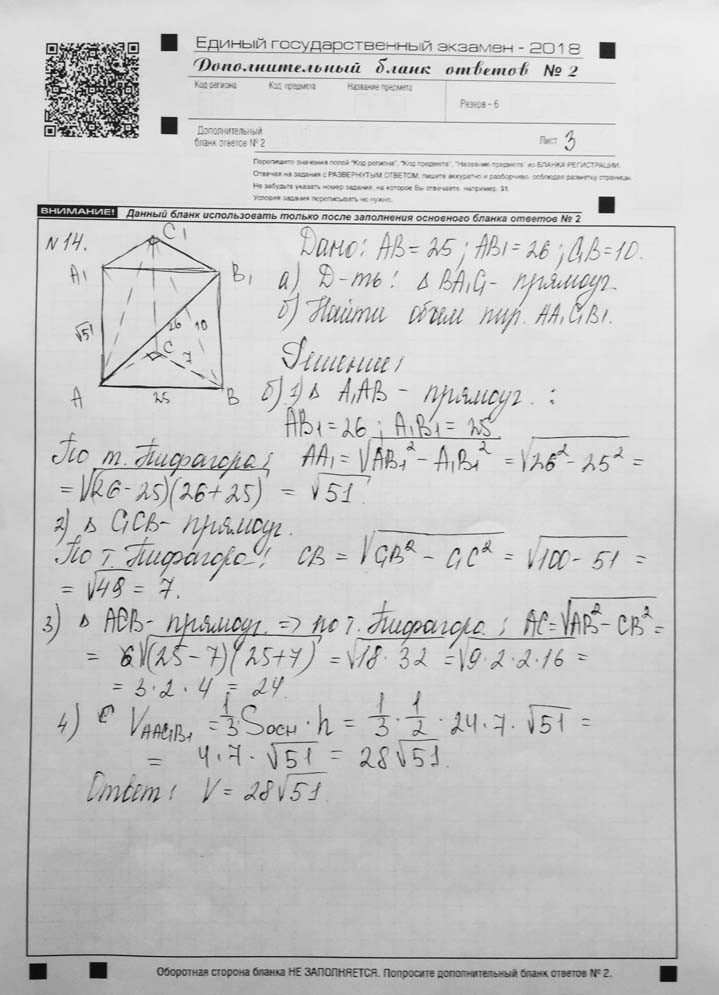 Единый государственный экзамен - 2018
Дополнительный бланк ответов № 2
Код региона Код предмета Название предмета
Резерв - 6
Дополнительный
бланк ответов № 2
Лист 3
Перепишите значения полей "Код региона", "Код предмета", "Название предмета" из БЛАНКА РЕГИСТРАЦИИ.
Отвечая на задания с РАЗВЕРНУТЫМ ОТВЕТОМ, пишите аккуратно и разборчиво, соблюдая разметку страницы.
Не забудьте указать номер задания, на которое Вы отвечаете, например, 31.
Условия задания переписывать не нужно.
ВНИМАНИЕ! Данный бланк использовать только после заполнения основного бланка ответов № 2
№ 14.
C1
A1
B1
√51
26
10
C
7
A
25
B
Дано: AB = 25; AB1 = 26; C1B = 10.
а) Д-ть: △ BA1C1 - прямоуг.
б) Найти объем пир. AA1C1B1.
Решение:
б) 1) △ A1AB - прямоуг. :
AB1 = 26; A1B1 = 25
По т. Пифагора: AA1 = √AB1² - A1B1² = √26² - 25² =
= √(26 - 25)(26 + 25) = √51.
2) △ C1CB - прямоуг.
По т. Пифагора: CB = √C1B² - C1C² = √100 - 51 =
= √48 = 7.
3) △ ACB - прямоуг. => по т. Пифагора: AC = √AB² - CB² =
= √(25 - 7)(25 + 7) = √18 · 32 = √9 · 2 · 2 · 16 =
= 3 · 2 · 4 = 24.
4) V AA1C1B1 = 1/3 · Sосн · h = 1/3 · 1/2 · 24 · 7 · √51 =
= 4 · 7 · √51 = 28√51.
Ответ: V = 28√51.
Оборотная сторона бланка НЕ ЗАПОЛНЯЕТСЯ. Попросите дополнительный бланк ответов № 2.